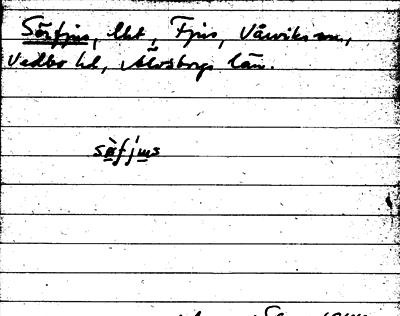 Sörfjus, lht, Fjus, Vårviks sn.,
Vedbo hd, Älvsborgs län.
sàfjus